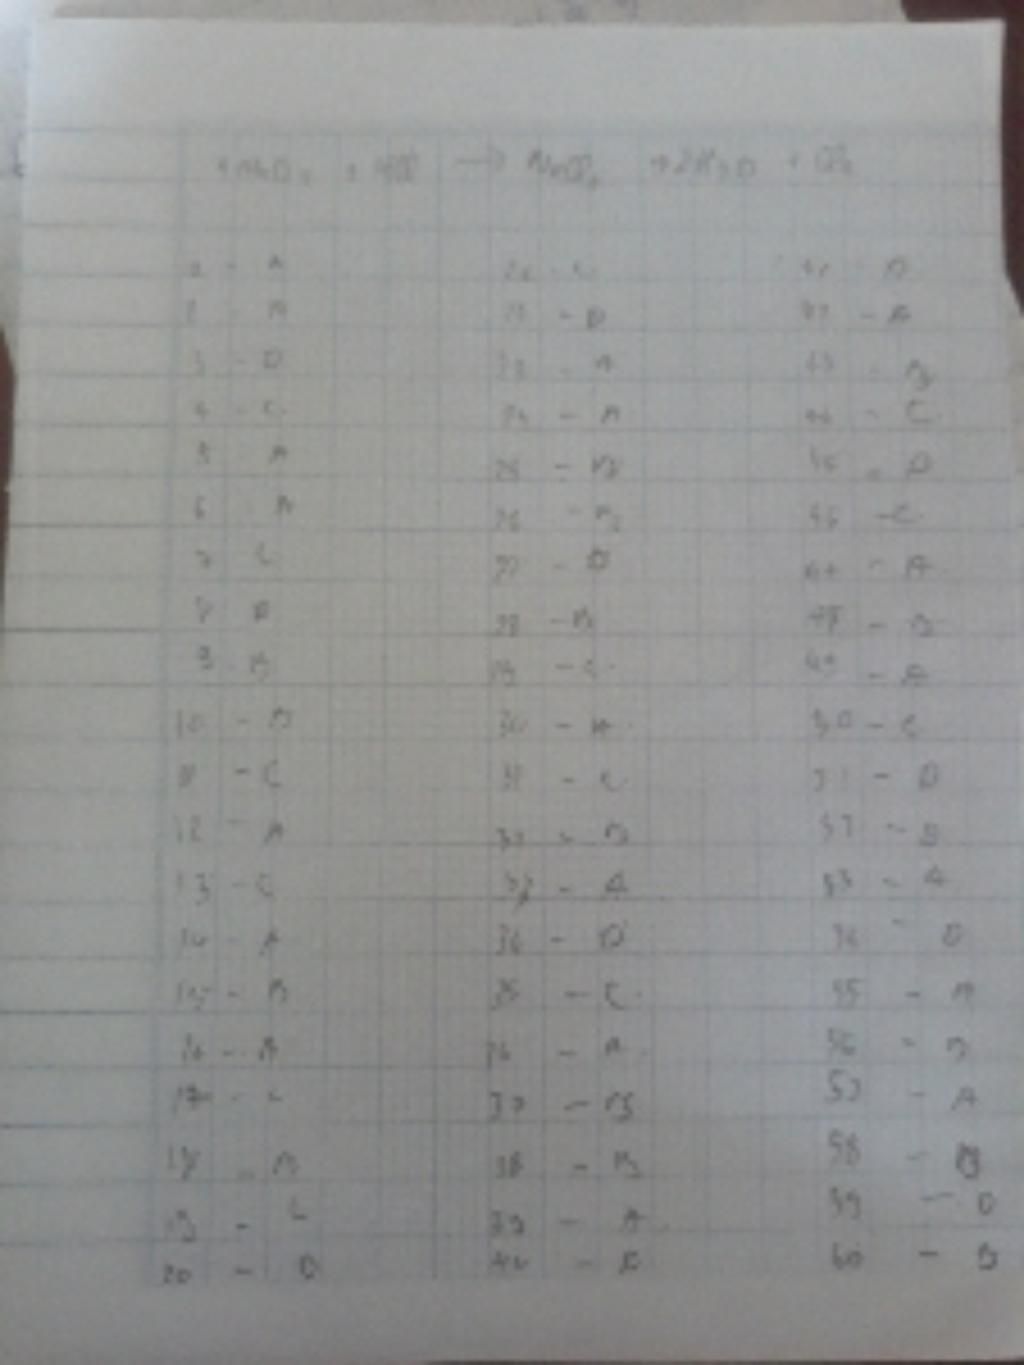 MnO2 + 4HCl → MnCl2 + 2H2O + Cl2
1 - A
2 - A
3 - D
4 - C
5 A
6 A
7 C
9 - B
10 - B
11 - C
12 - A
13 - C
14 - A
15 - B
16 - A
17 - C
19 - C
20 - D
21 - C
22 - D
23 - A
24 - A
25 - B
26 - B
27 - D
28 - B
29 - C
30 - A
31 - C
32 - B
33 - A
34 - D
35 - C
36 - A
37 - B
38 - B
39 - A
42 - A
43 - B
44 - C
45 - D
46 - C
47 - A
48 - B
49 - A
50 - C
51 - D
52 - B
53 - A
54 - D
55 - A
56 - B
57 - A
58 - B
59 - D
60 - B